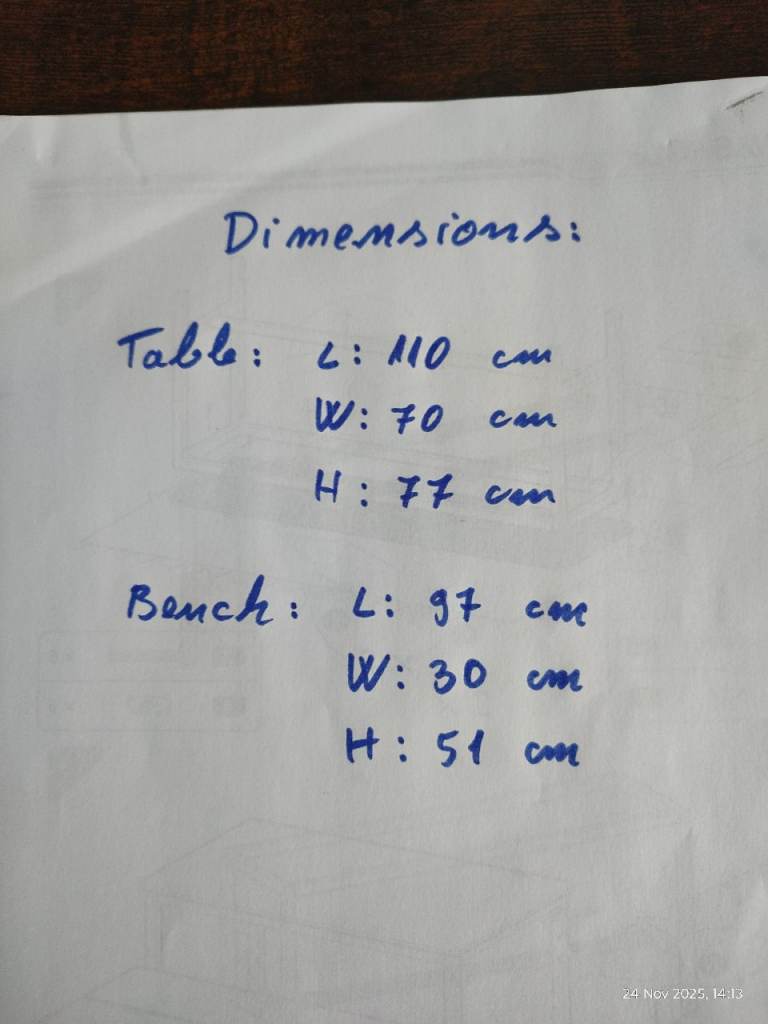 Dimensions:
Table: L: 110 cm
W: 70 cm
H: 77 cm
Bench: L: 97 cm
W: 30 cm
H: 51 cm
24 Nov 2025, 14:13